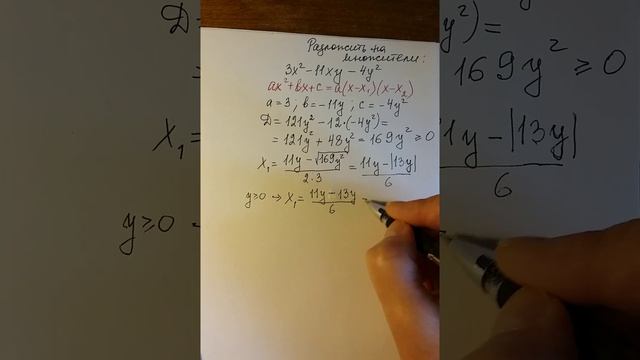 Разложить на
множители:
3x² - 11xy - 4y²
ax² + bx + c = a(x - x₁)(x - x₂)
a = 3 ; b = -11y ; c = -4y²
D = 121y² - 12·(-4y²) =
= 121y² + 48y² = 169y² ≥ 0
x₁ = (11y - √169y²)/(2·3) = (11y - |13y|)/6
y ≥ 0 → x₁ = (11y - 13y)/6 =